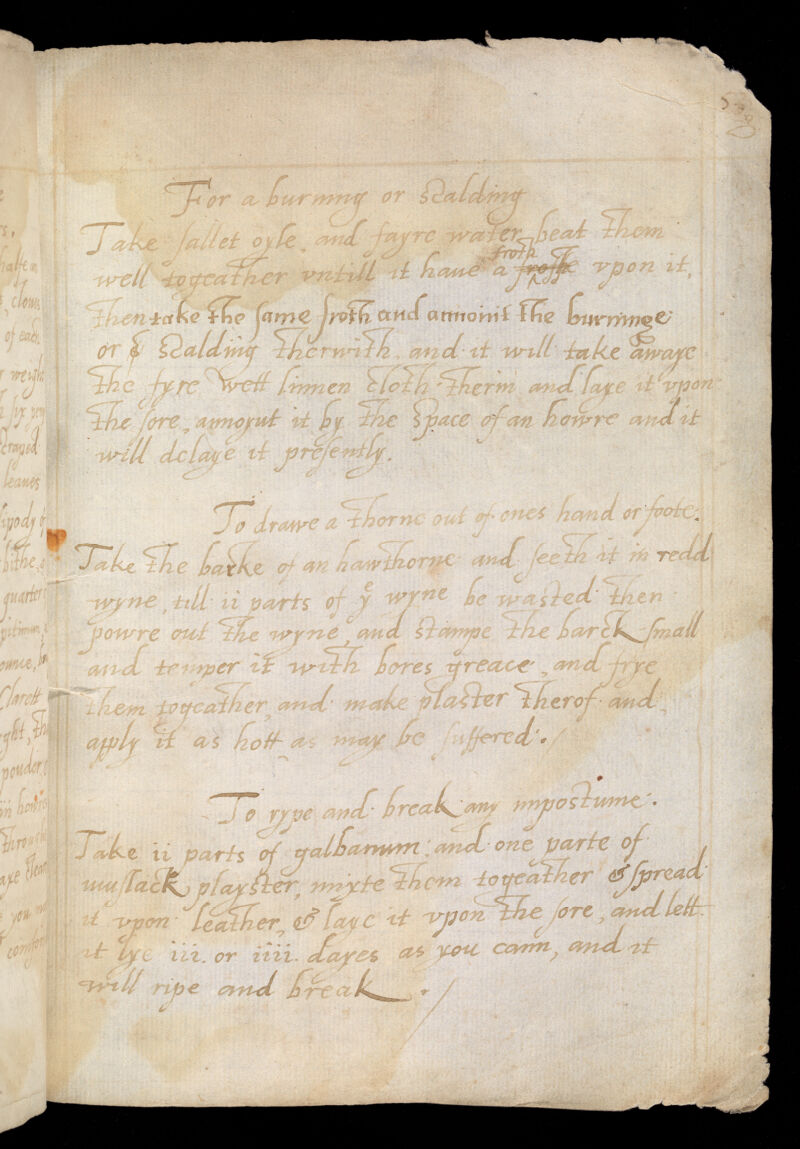 For a burning or scalding
Take sallet oyle and fayre water beat them
froth
well togeather vntill it haue a vpon it,
then take the same froth and annoint the burninge
or scaldiig therwith and it will take awaye
the fyre wett linnen cloth therin and laye it vpon
the sore, annoynt it by the space of an howre and it
will dclaye it presently.
To drawe a thorne out of ones hand or foote.
Take the barke of an hawthorne and seeth it in redd
wyne, till ii parts of ye wyne be wasted then
powre out the wyne, and stampe the barck small
and temper it with bores greace, and frye
them togeather, and make plaster therof and
apply it as hott as may be suffered ./
To rype and break any impostume.
Take ii parts of galbanum and one parte of
playster, mixte them togeather & spread
it vpon leather, & laye it vpon the sore, and lett
it lye iii. or iiii. dayes as you cann, and it
will ripe and break ./